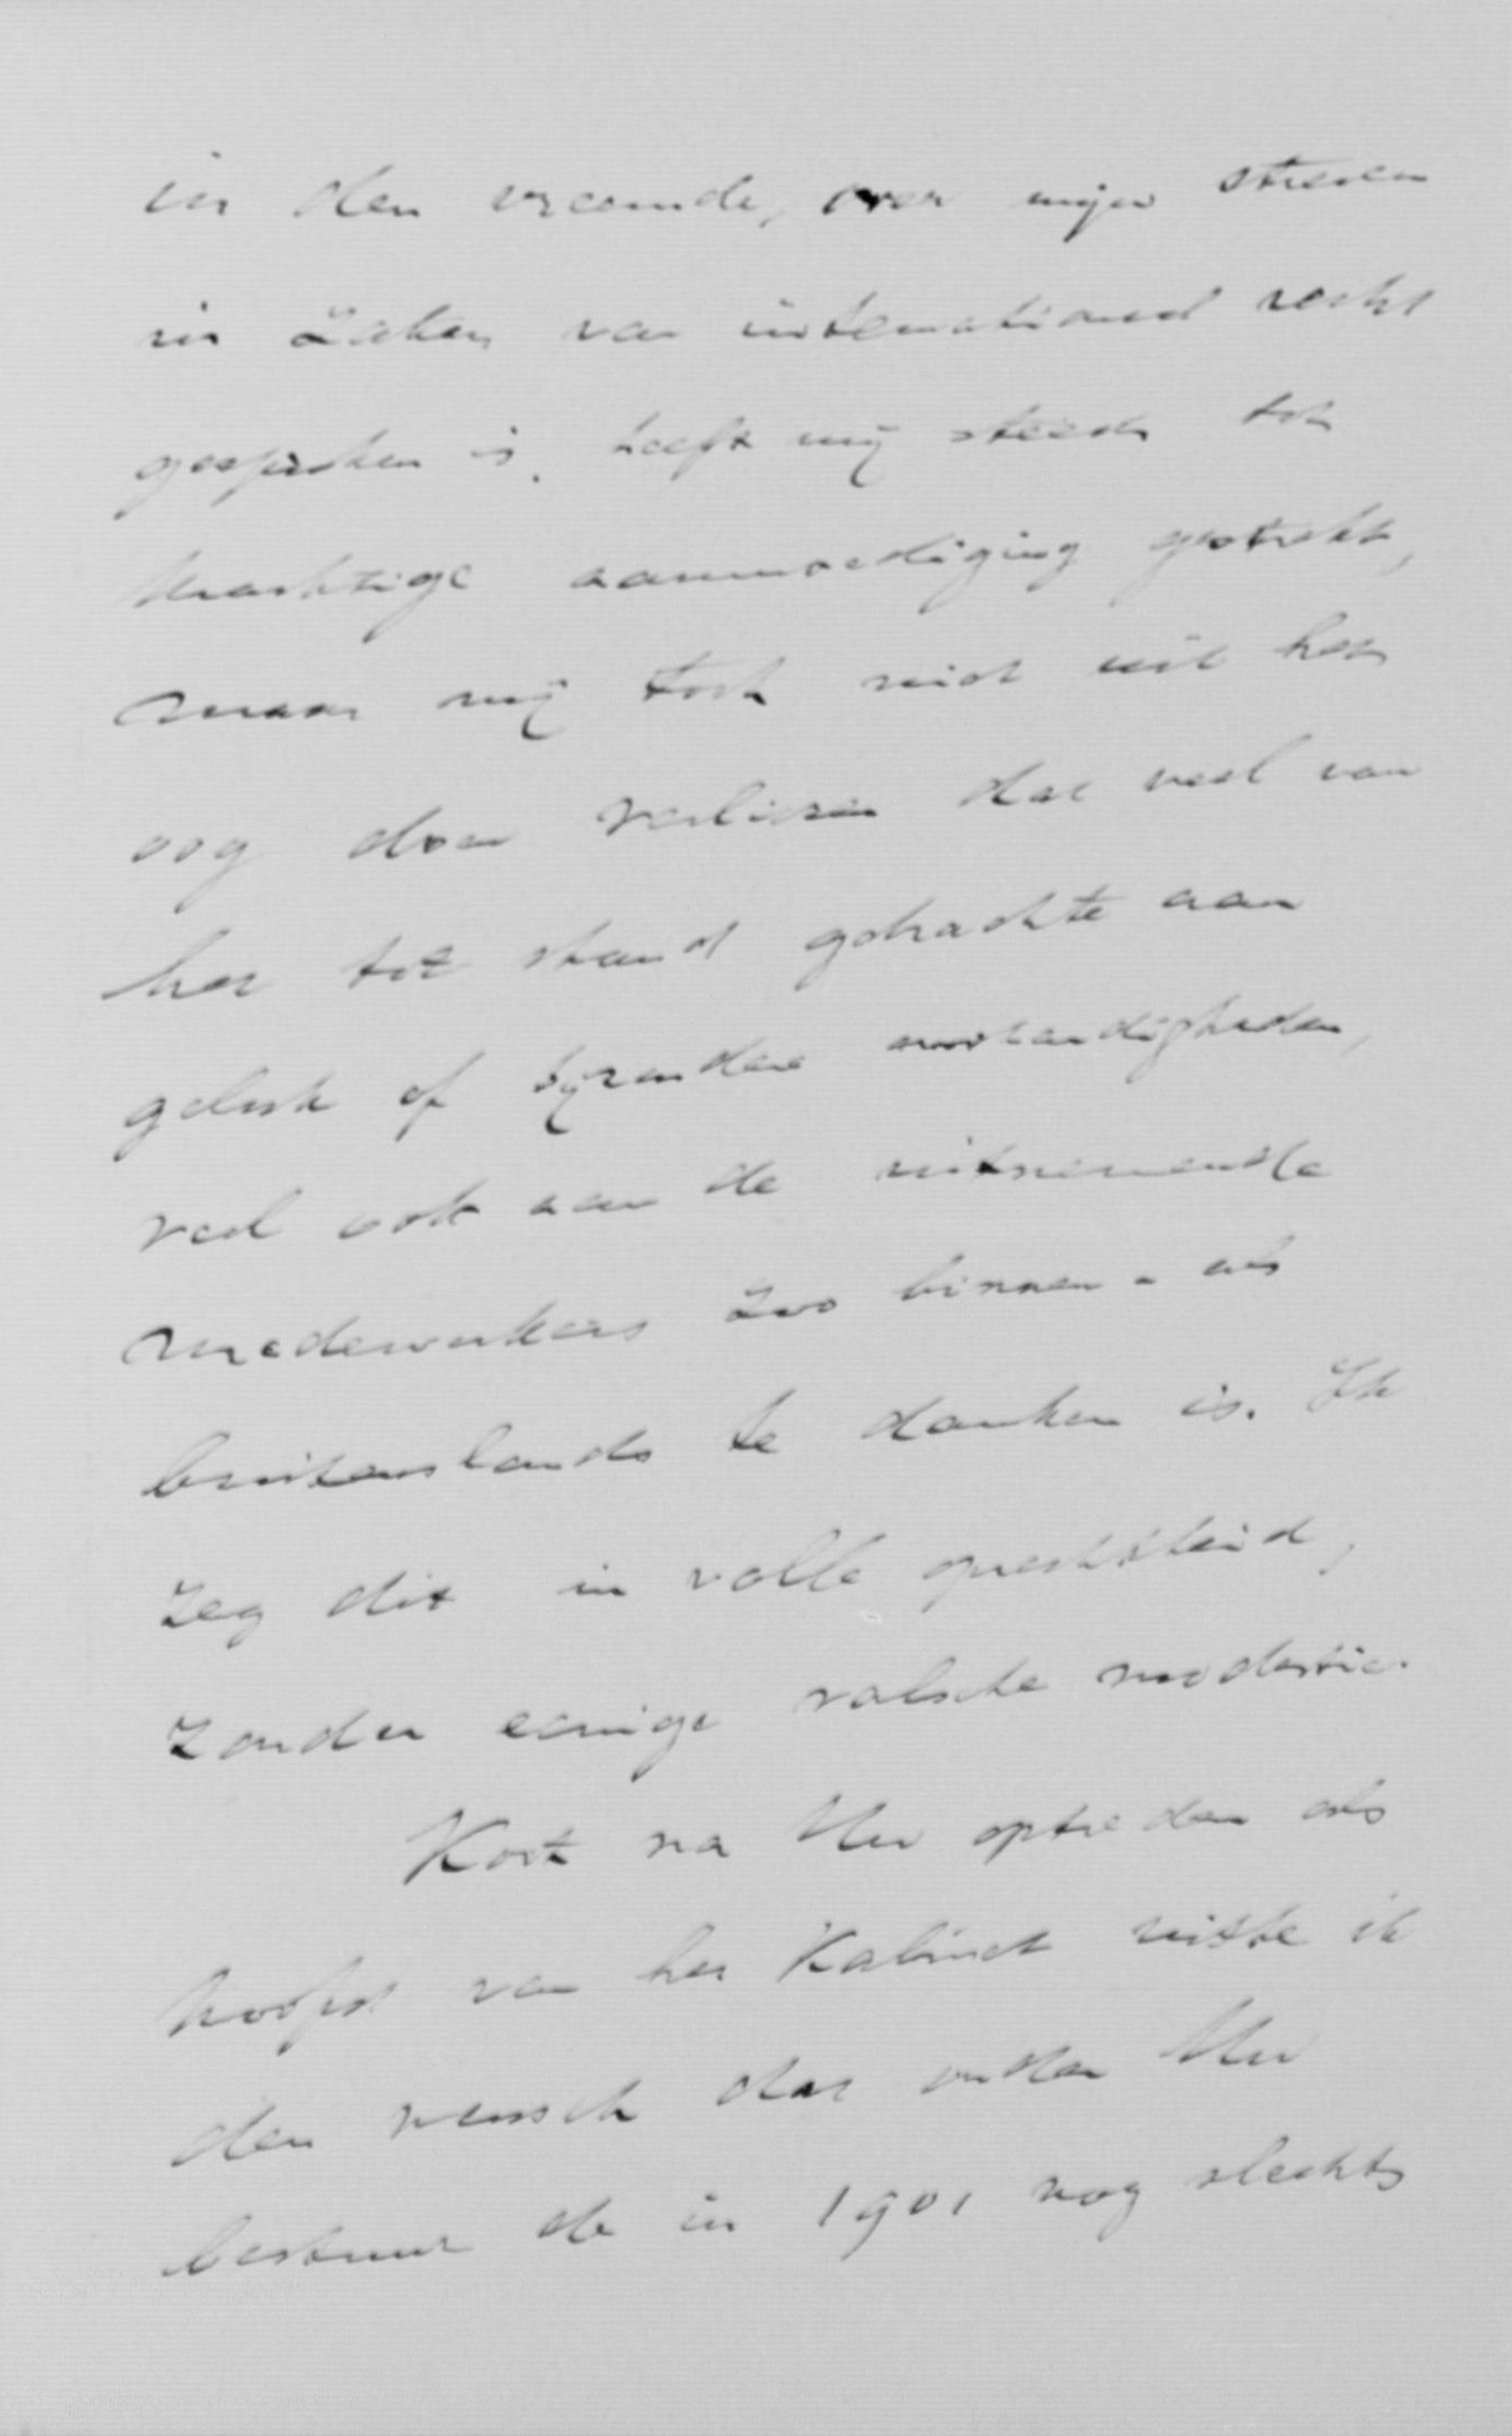 in den vreemde, over mijn streven
in zaken van internationaal recht
gesproken is, heeft mij steeds tot
krachtige aanmoediging gestrekt,
maar mij toch niet uit het
oog doen verliezen dat veel van
het tot stand gebrachte aan
geluk of bijzondere omstandigheden,
veel ook aan de uitnemende
medewerkers zoo binnen- als
buitenslands te danken is. Ik
zeg dit in volle oprechtheid,
zonder eenige valsche modestie.
Kort na Uw optreden als
hoofd van het Kabinet uitte ik
den wensch dat onder Uw
bestuur de in 1901 nog slechts